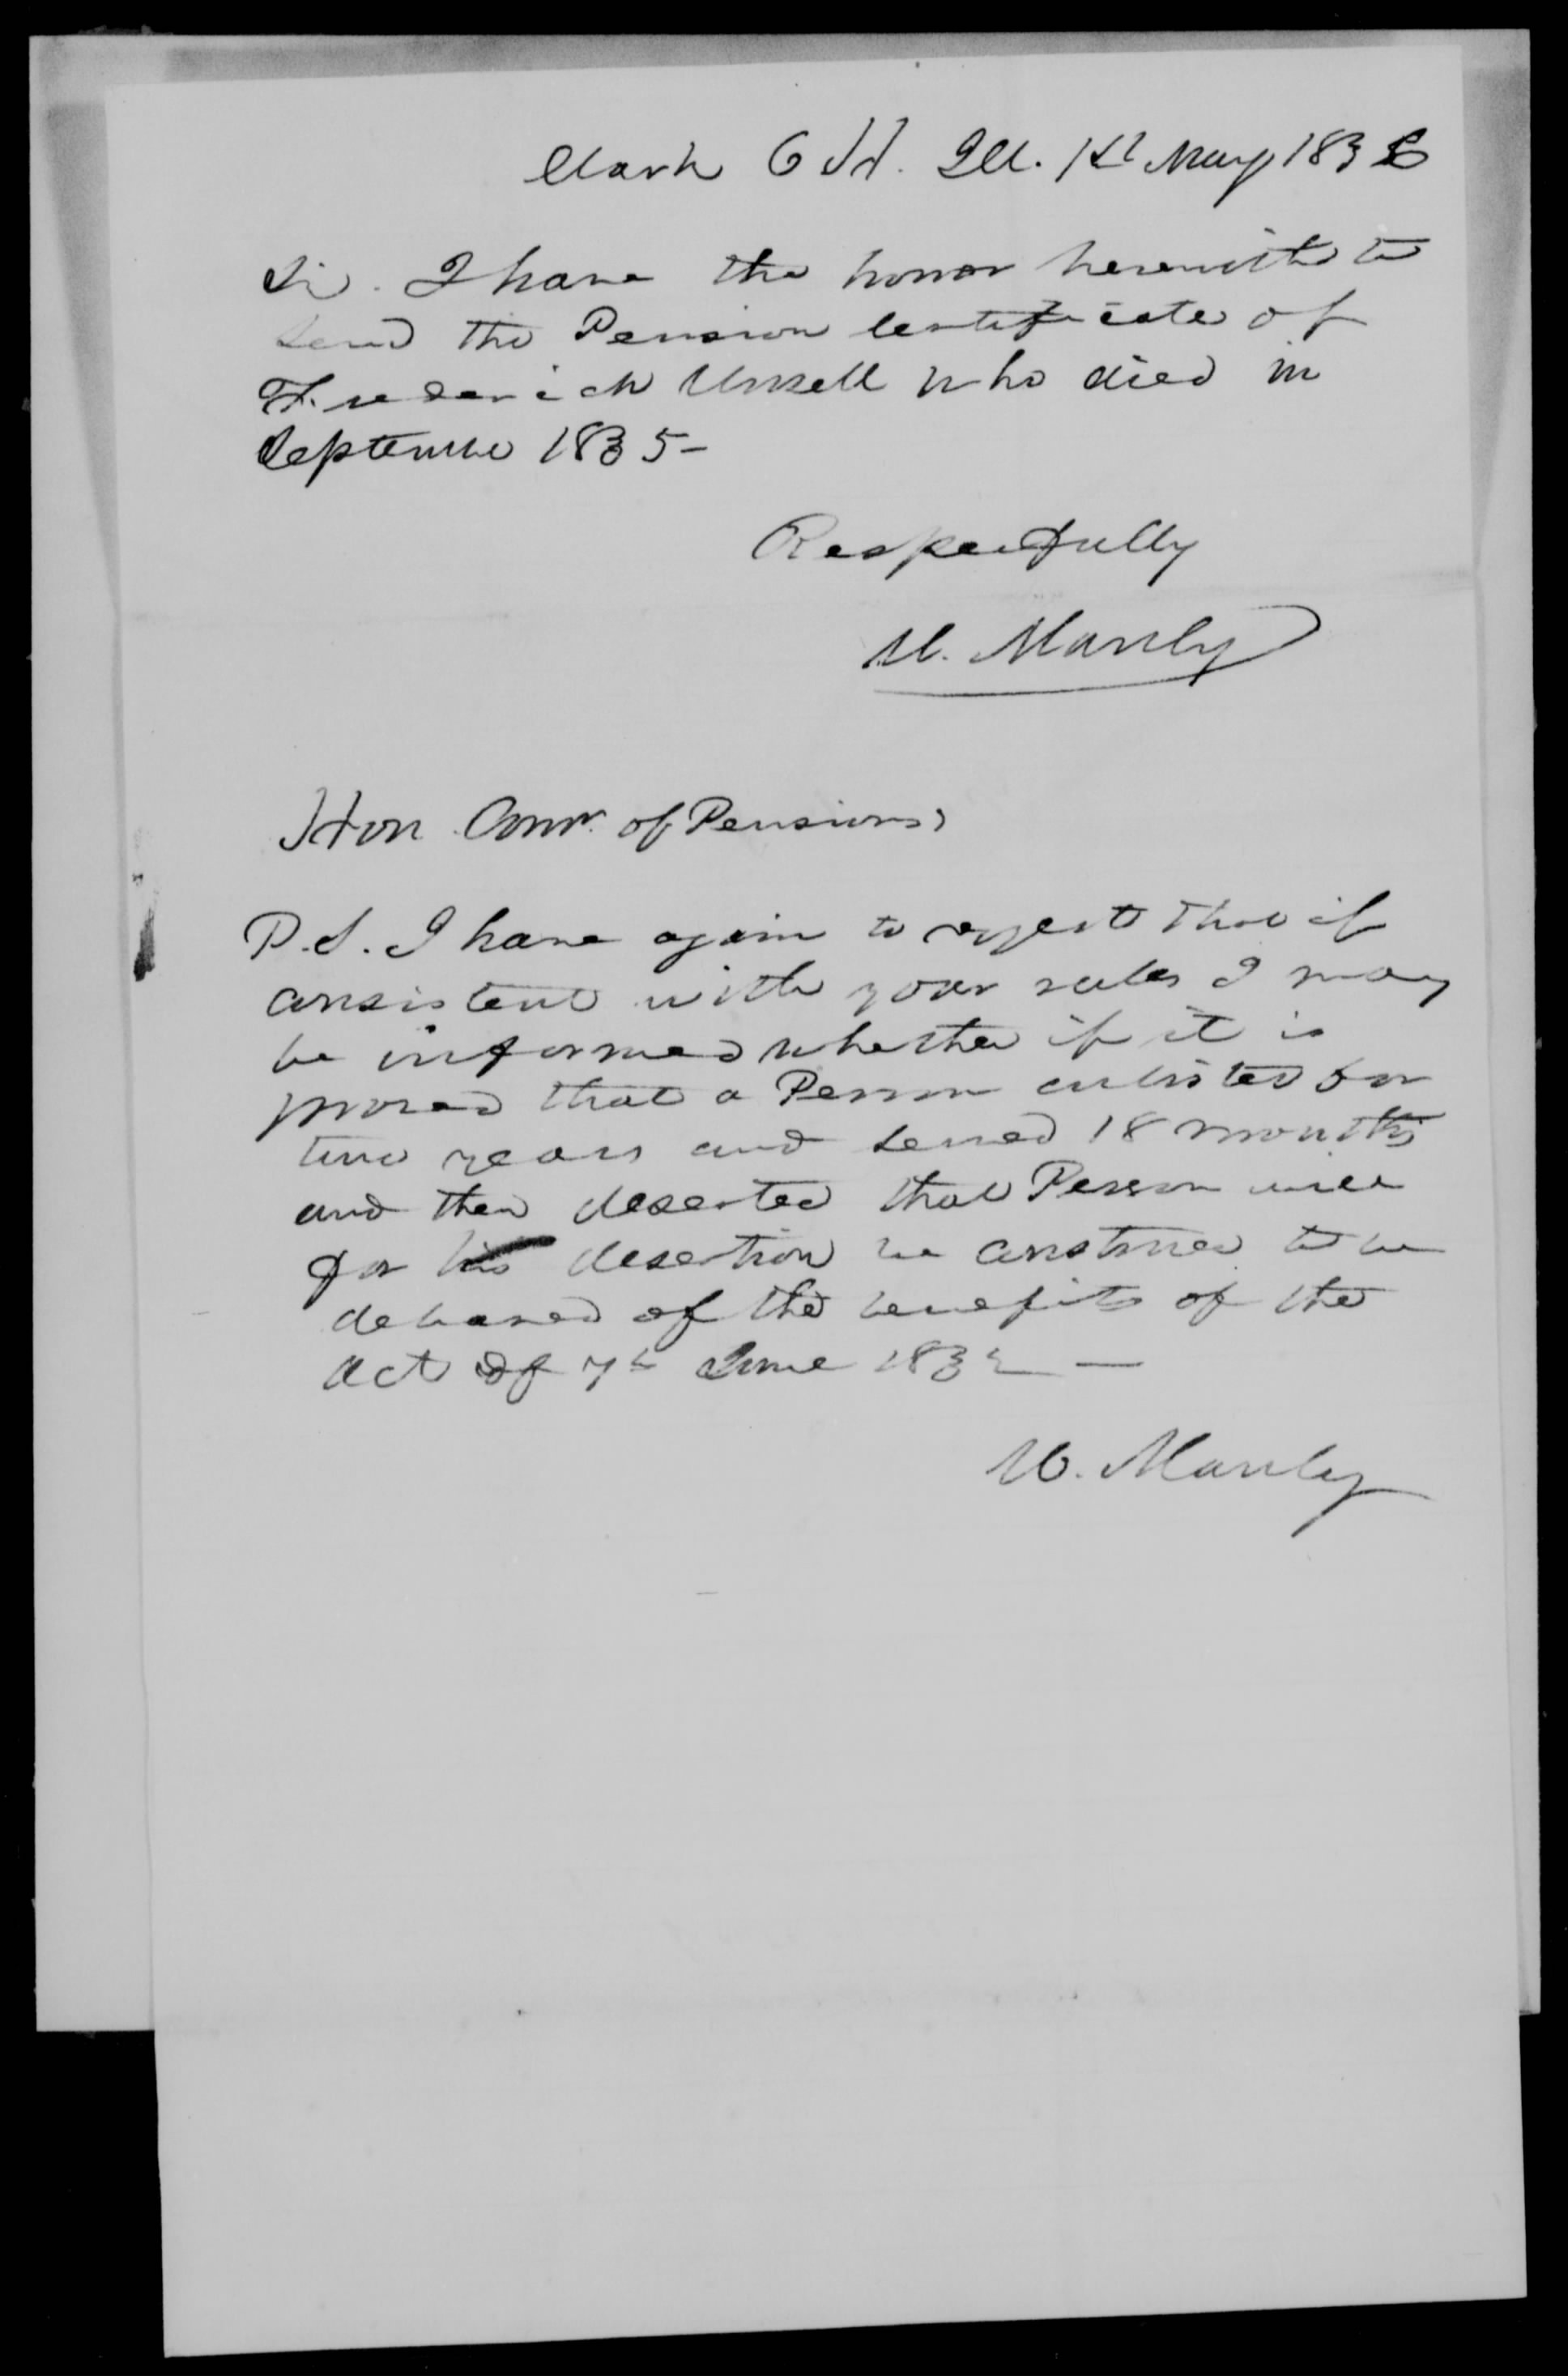 Clark C H. Ill. 1st May 1836
Sir. I have the honor herewith to
send the Pension Certificate of
Frederick Unsell who died in
September 1835-
Respectfully
U. Manly
Hon Comr. of Pensions,
P.S. I have again to request that if
consistent with your rules I may
be informed whether if it is
proved that a Person enlisted for
two years and served 18 months
and then deserted that Person will
for his desertion be construed to be
debared of the benefits of the
Act of 7th June 1832 —
U. Manly